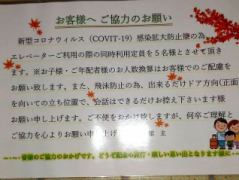 お客様へ ご協力のお願い
新型コロナウイルス（COVIT-19）感染拡大防止策の為
エレベーターご利用の際の同時利用定員を５名様とさせて頂き
ます。※お子様・ご年配者様のお人数換算はお客様でのご配慮を
お願い致します。また、飛沫防止の為、出来るだけドア方向(正面
を向いての立ち位置で、会話はできるだけお控え下さいます様
お願い申し上げます。ご不便をおかけ致しますが、何卒ご理解と
ご協力を心よりお願い申し上げ
皆様のご協力のおかげです。